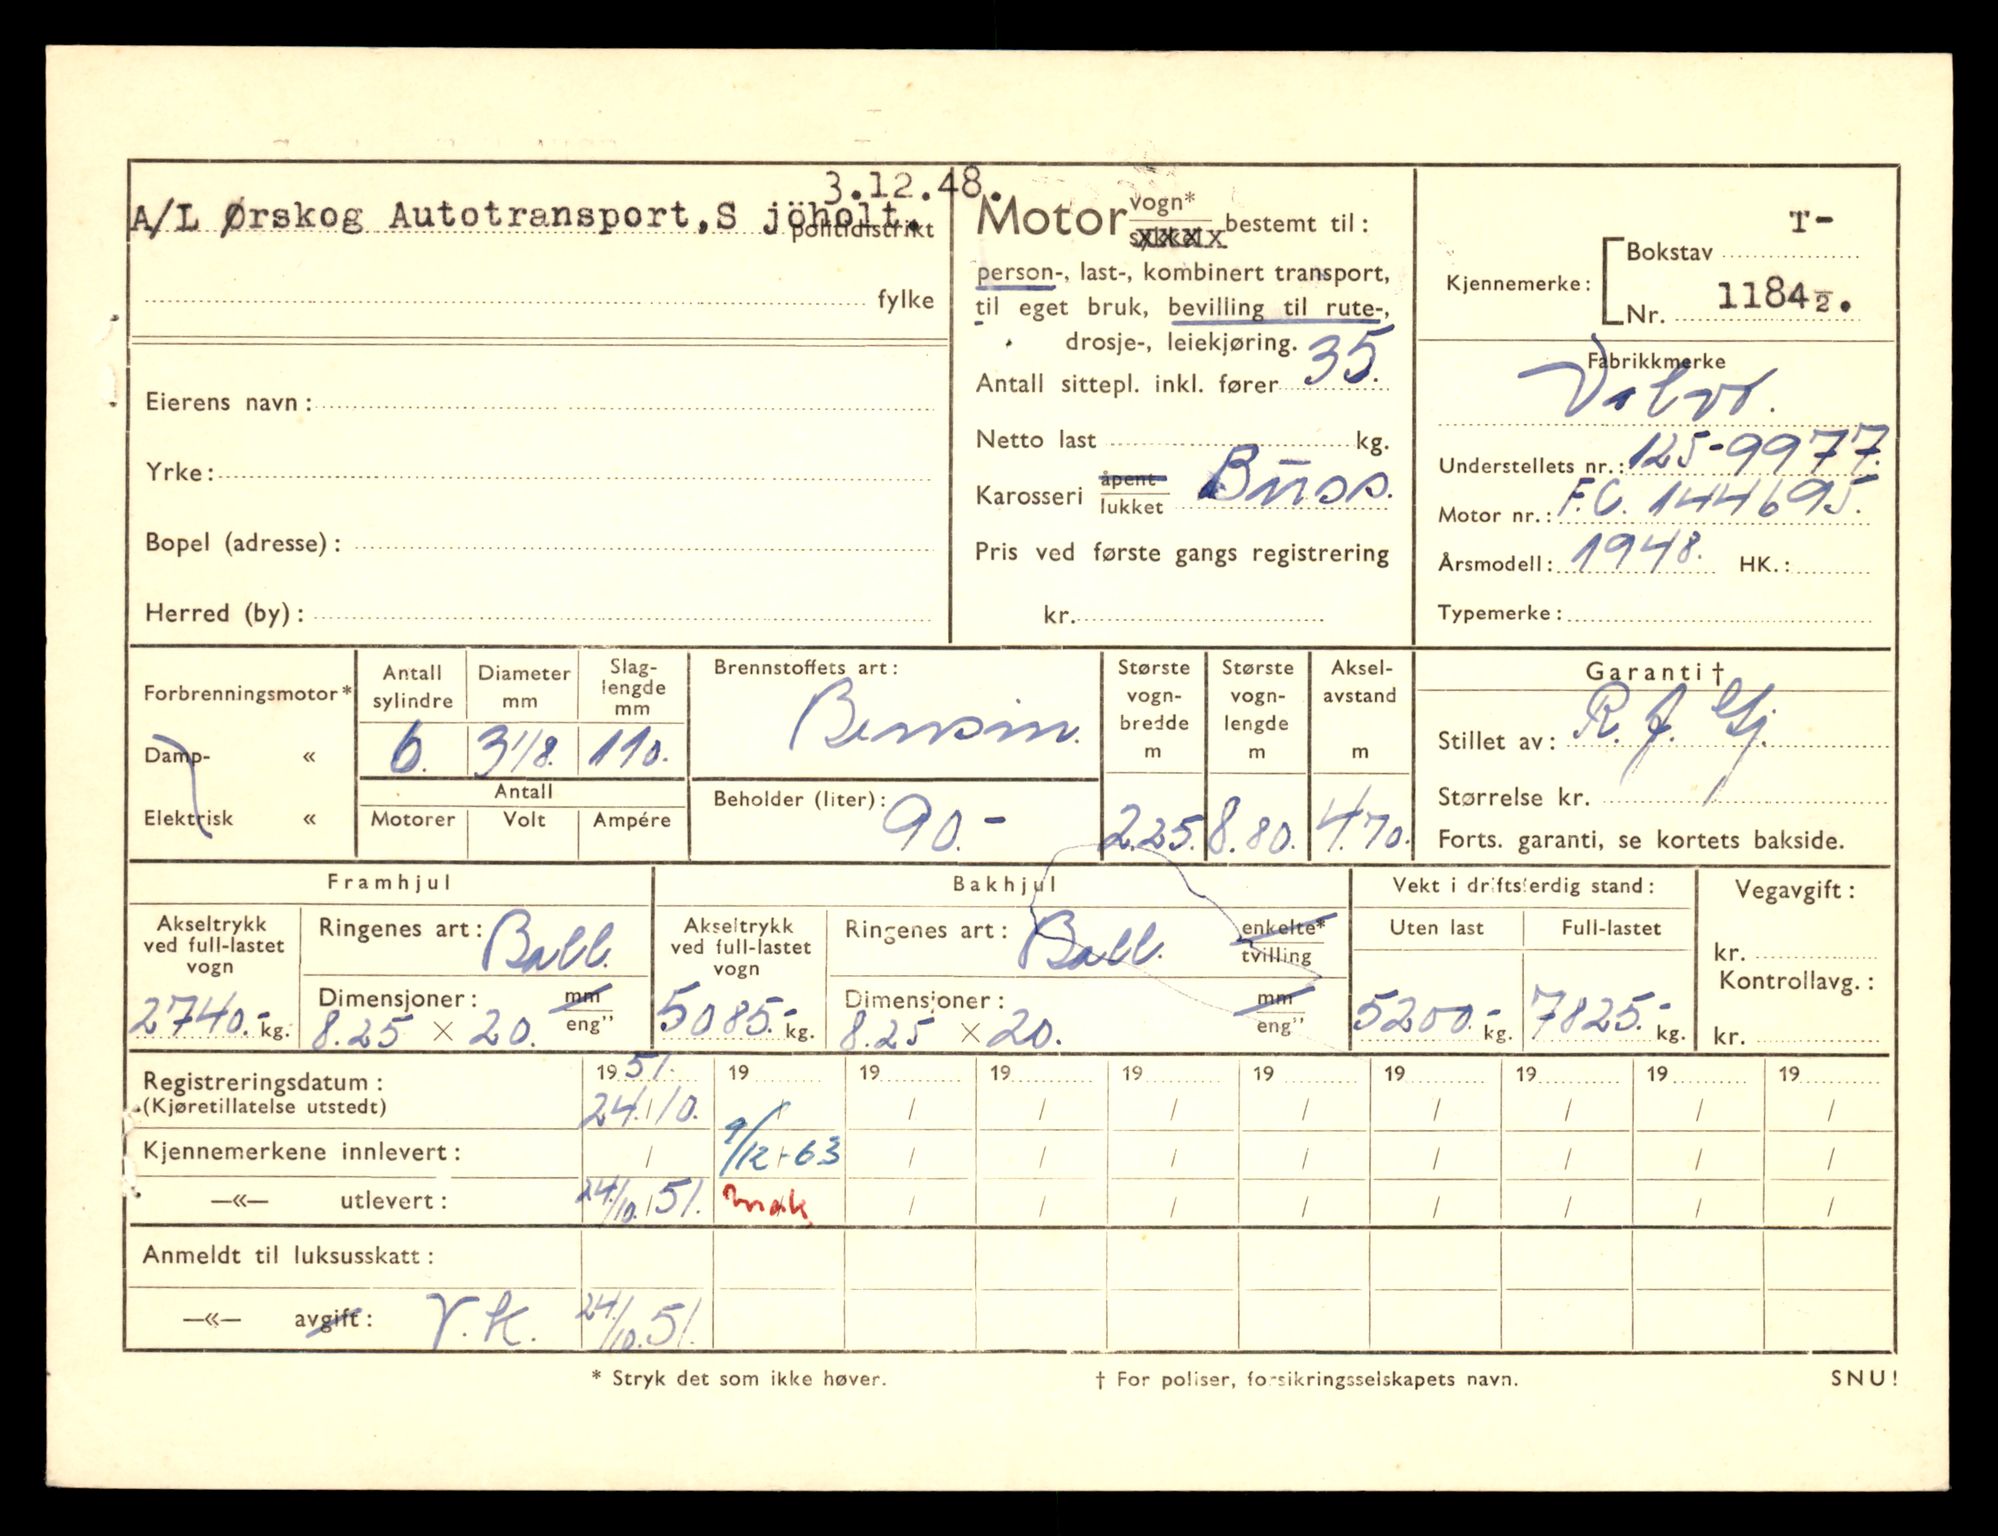 3.12.48.
A/L Ørskog Autotransport,S jöholt.
politidistrikt
fylke
Eierens navn :
Yrke :
Bopel (adresse) :
Herred (by) :
Motor vogn* bestemt til :
person-, last-, kombinert transport,
til eget bruk, bevilling til rute-,
drosje-, leiekjøring.
Antall sittepl. inkl. fører 35.
Netto last kg.
Karosseri åpent lukket Buss.
Pris ved første gangs registrering
kr.
Kjennemerke :
Bokstav T-
Nr. 1184½.
Fabrikkmerke
Volvo.
Understellets nr. : 125-9977.
Motor nr. : F.C. 144695.
Årsmodell : 1948. HK. :
Typemerke :
Forbrenningsmotor*
Damp- «
Elektrisk «
Antall sylindre
6.
Diameter mm
3 1/8.
Slag-lengde mm
110.
Antall
Motorer Volt Ampére
Brennstoffets art :
Bensin.
Beholder (liter) : 90.-
Største vogn-bredde m
2.25.
Største vogn-lengde m
8.80.
Aksel-avstand m
4.70.
Garanti †
Stillet av : R. f. Gj.
Størrelse kr.
Forts. garanti, se kortets bakside.
Framhjul
Akseltrykk ved full-lastet vogn
2740.- kg.
Ringenes art : Ball.
Dimensjoner : mm eng”
8.25 × 20.
Bakhjul
Akseltrykk ved full-lastet vogn
5085.- kg.
Ringenes art : Ball. enkelte* tvilling
Dimensjoner : mm eng”
8.25 × 20.
Vekt i driftsferdig stand :
Uten last Full-lastet
5200.- kg. 7825.- kg.
Vegavgift :
kr.
Kontrollavg. :
kr.
Registreringsdatum : 1951. 19 19 19 19 19 19 19 19 19
(Kjøretillatelse utstedt) 24./10. / / / / / / / / /
Kjennemerkene innlevert : / 9/12-63 / / / / / / / /
—«— utlevert : 24./10. 51. mak / / / / / / / /
Anmeldt til luksusskatt :
—«— avgift : V.k. 24./10. 51.
* Stryk det som ikke høver.
† For poliser, forsikringsselskapets navn.
SNU!